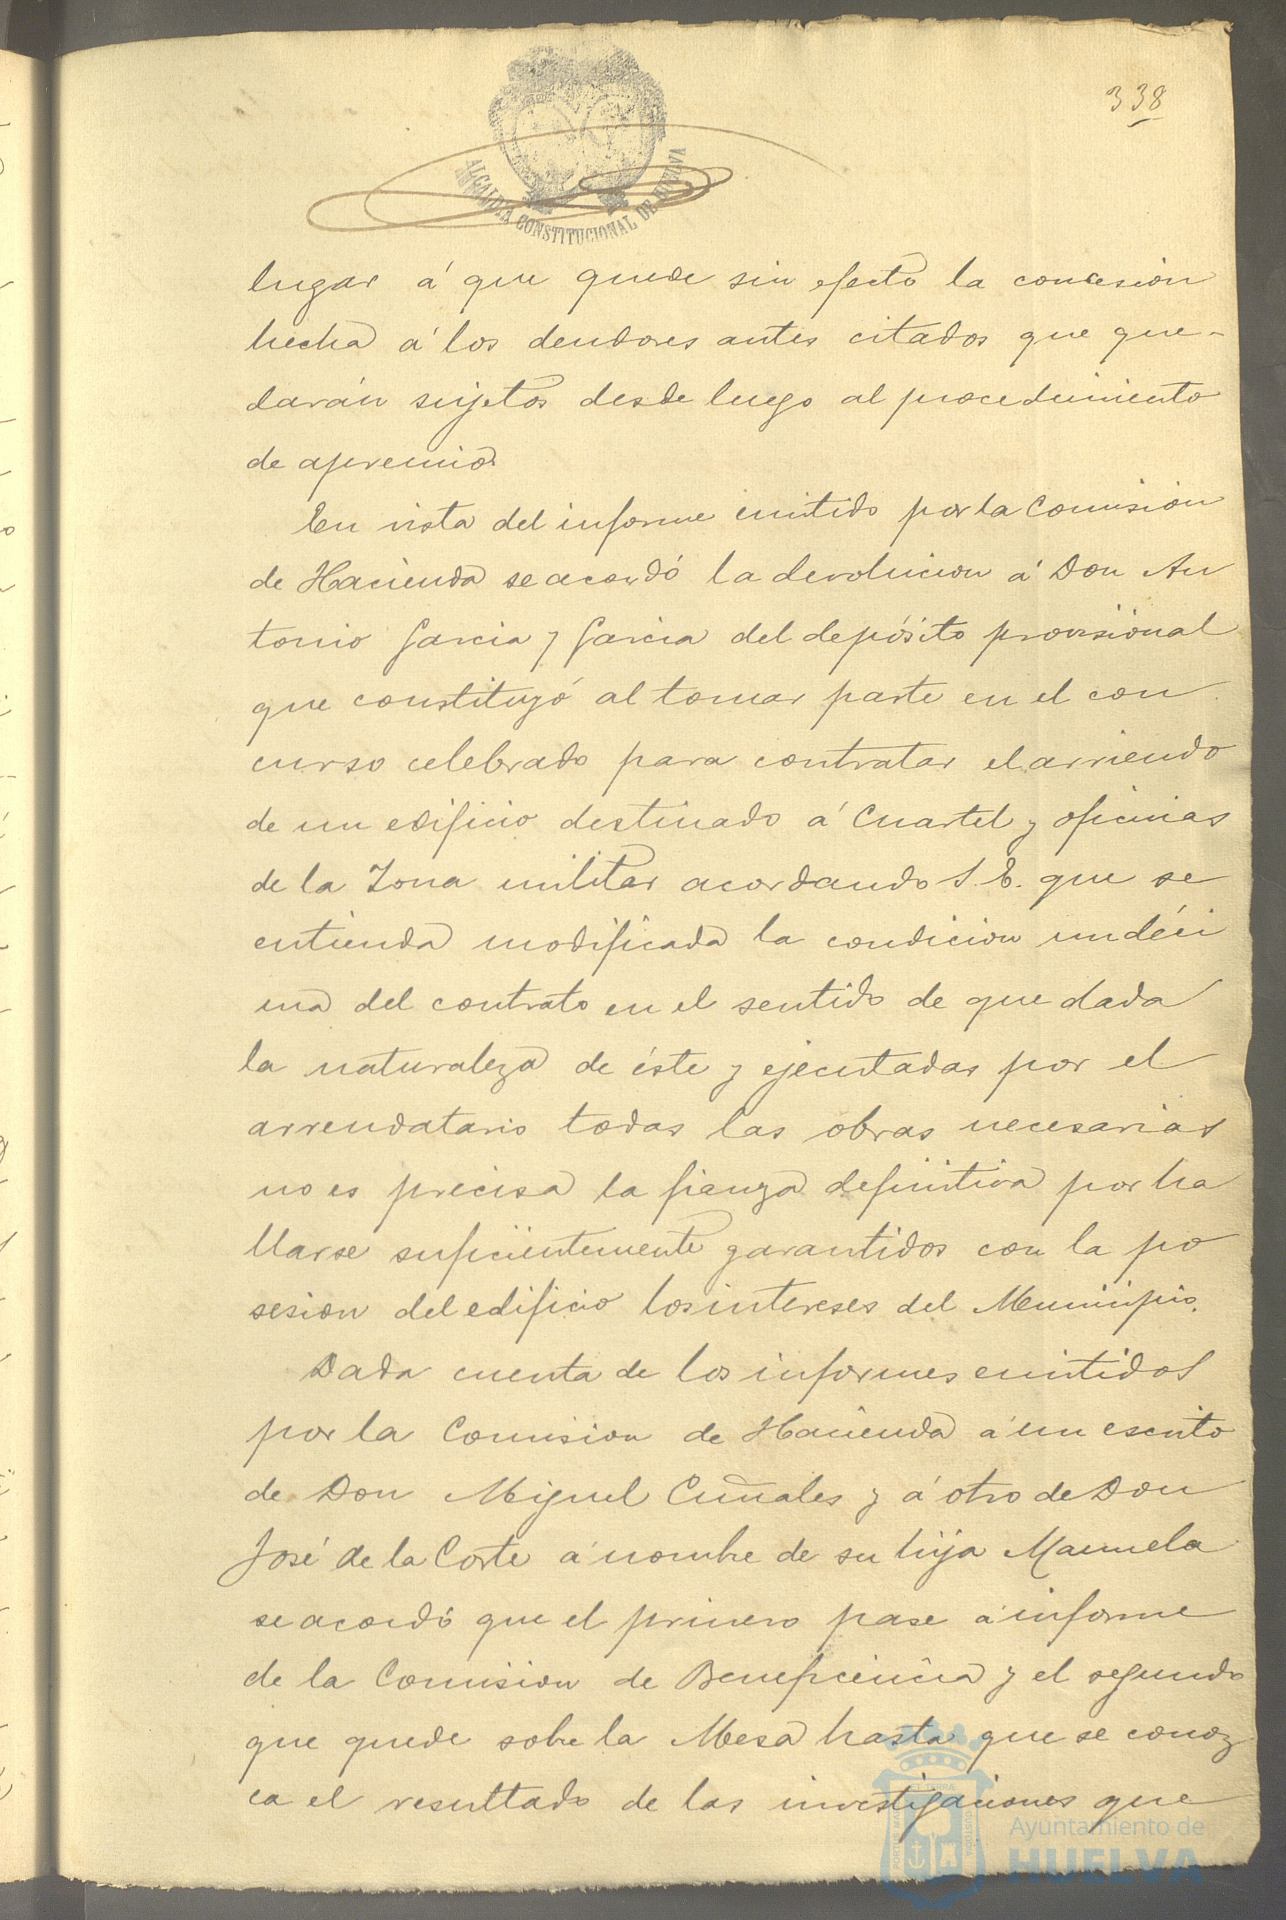 338
ALCALDIA CONSTITUCIONAL DE HUELVA
lugar á que quede sin efecto la concesion
hecha á los deudores antes citados que que-
darán sujetos desde luego al procedimiento
de apremio.
En vista del informe emitido por la Comisión
de Hacienda se acordó la devolucion á Don An
tonio Garcia y Garcia del depósito provisional
que constituyó al tomar parte en el con
curso celebrado para contratar el arriendo
de un edificio destinado á Cuartel y oficinas
de la Zona militar acordando S. E. que se
entienda modificada la condicion undéci
ma del contrato en el sentido de que dada
la naturaleza de éste y ejecutadas por el
arrendatario todas las obras necesarias
no es precisa la fianza definitiva por ha
llarse suficientemente garantidos con la po
sesion del edificio los intereses del Municipio.
Dada cuenta de los informes emitidos
por la Comision de Hacienda á un escrito
de Don Miguel Cuñales y á otro de Don
José de la Corte á nombre de su hija Manuela
se acordó que el primero pase á informe
de la Comision de Beneficencia y el segundo
que quede sobre la Mesa hasta que se conoz
ca el resultado de las investigaciones que
Ayuntamiento de
HUELVA